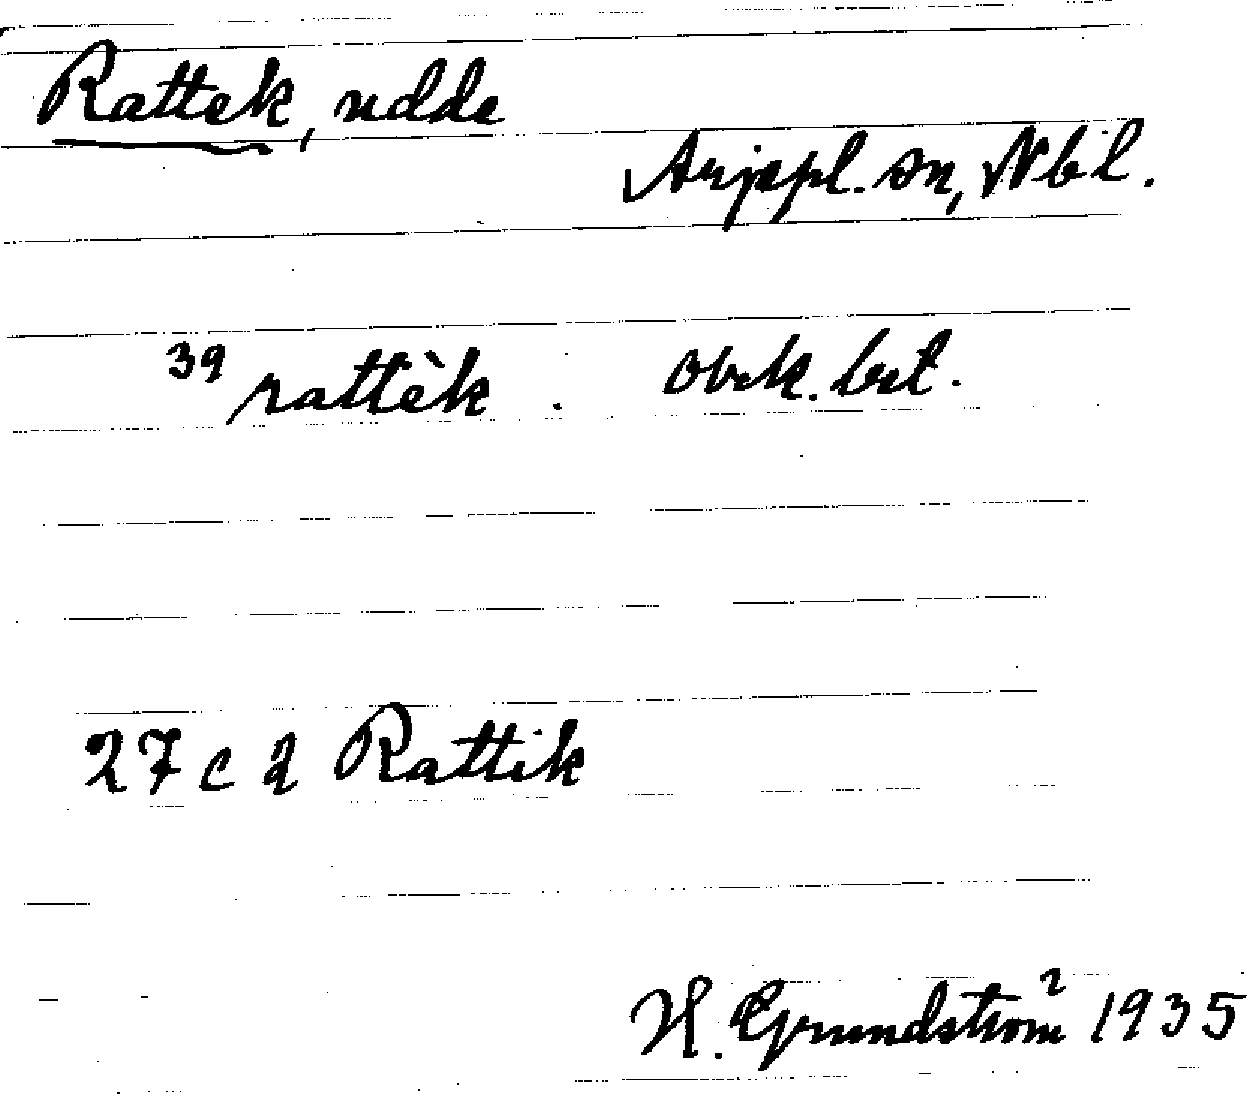 Rattek, udde
Arjepl. sn, Nbl.
39 rattèk . obek. bet.
27 c d Rattik
H. Grundström 1935